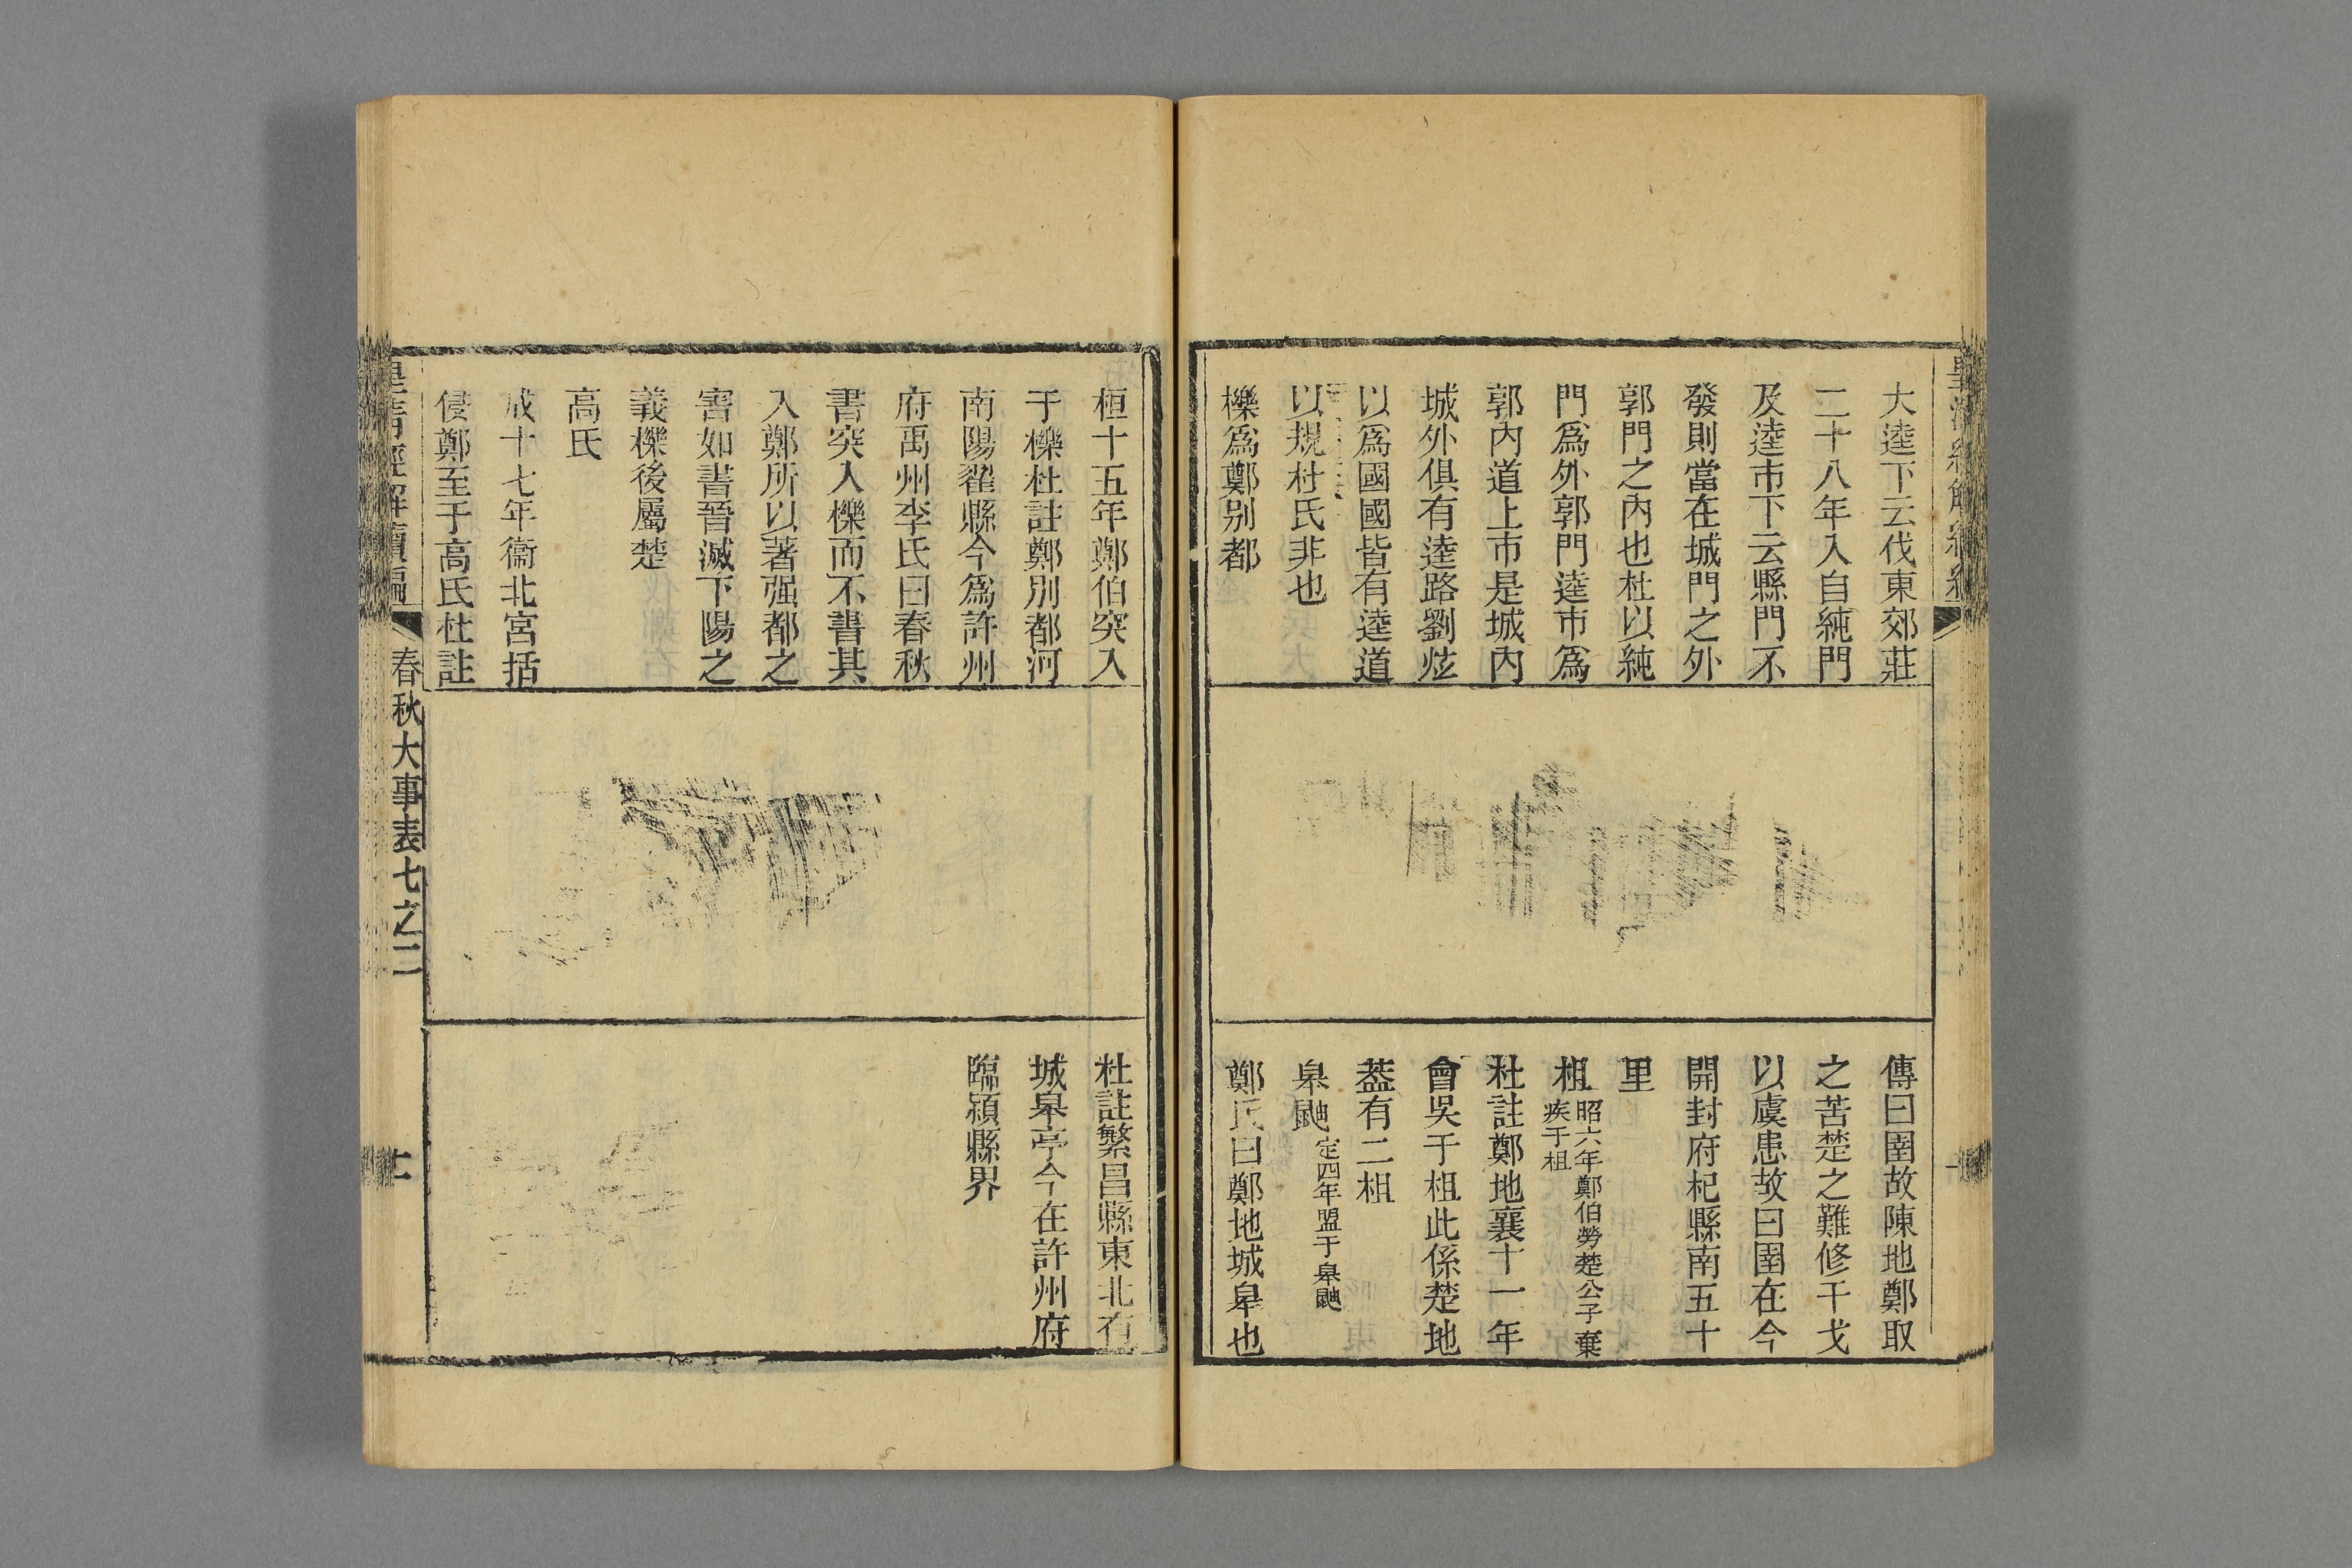 大逵下云伐東郊莊
二十八年入自純門
及逵市下云縣門不
發則當在城門之外
郭門之內也杜以純
門爲外郭門逵市爲
郭內道上市是城內
城外俱有逵路劉炫
以爲國國皆有逵道
以規杜氏非也
櫟爲鄭別都
傳曰圉故陳地鄭取
之苦楚之難修干戈
以虞患故曰圉在今
開封府杞縣南五十
里
柤昭六年鄭伯勞楚公子棄
疾于柤
杜註鄭地襄十一年
會吳于柤此係楚地
葢有二柤
臯鼬定四年盟于臯鼬
鄭氏曰鄭地城臯也
桓十五年鄭伯突入
于櫟杜註鄭別都河
南陽翟縣今爲許州
府禹州李氏曰春秋
書突入櫟而不書其
入鄭所以著强都之
害如書晉滅下陽之
義櫟後屬楚
高氏
成十七年衞北宮括
侵鄭至于高氏杜註
杜註繁昌縣東北有
城臯亭今在許州府
臨潁縣界
皇淸經解續編
春秋大事表七之二